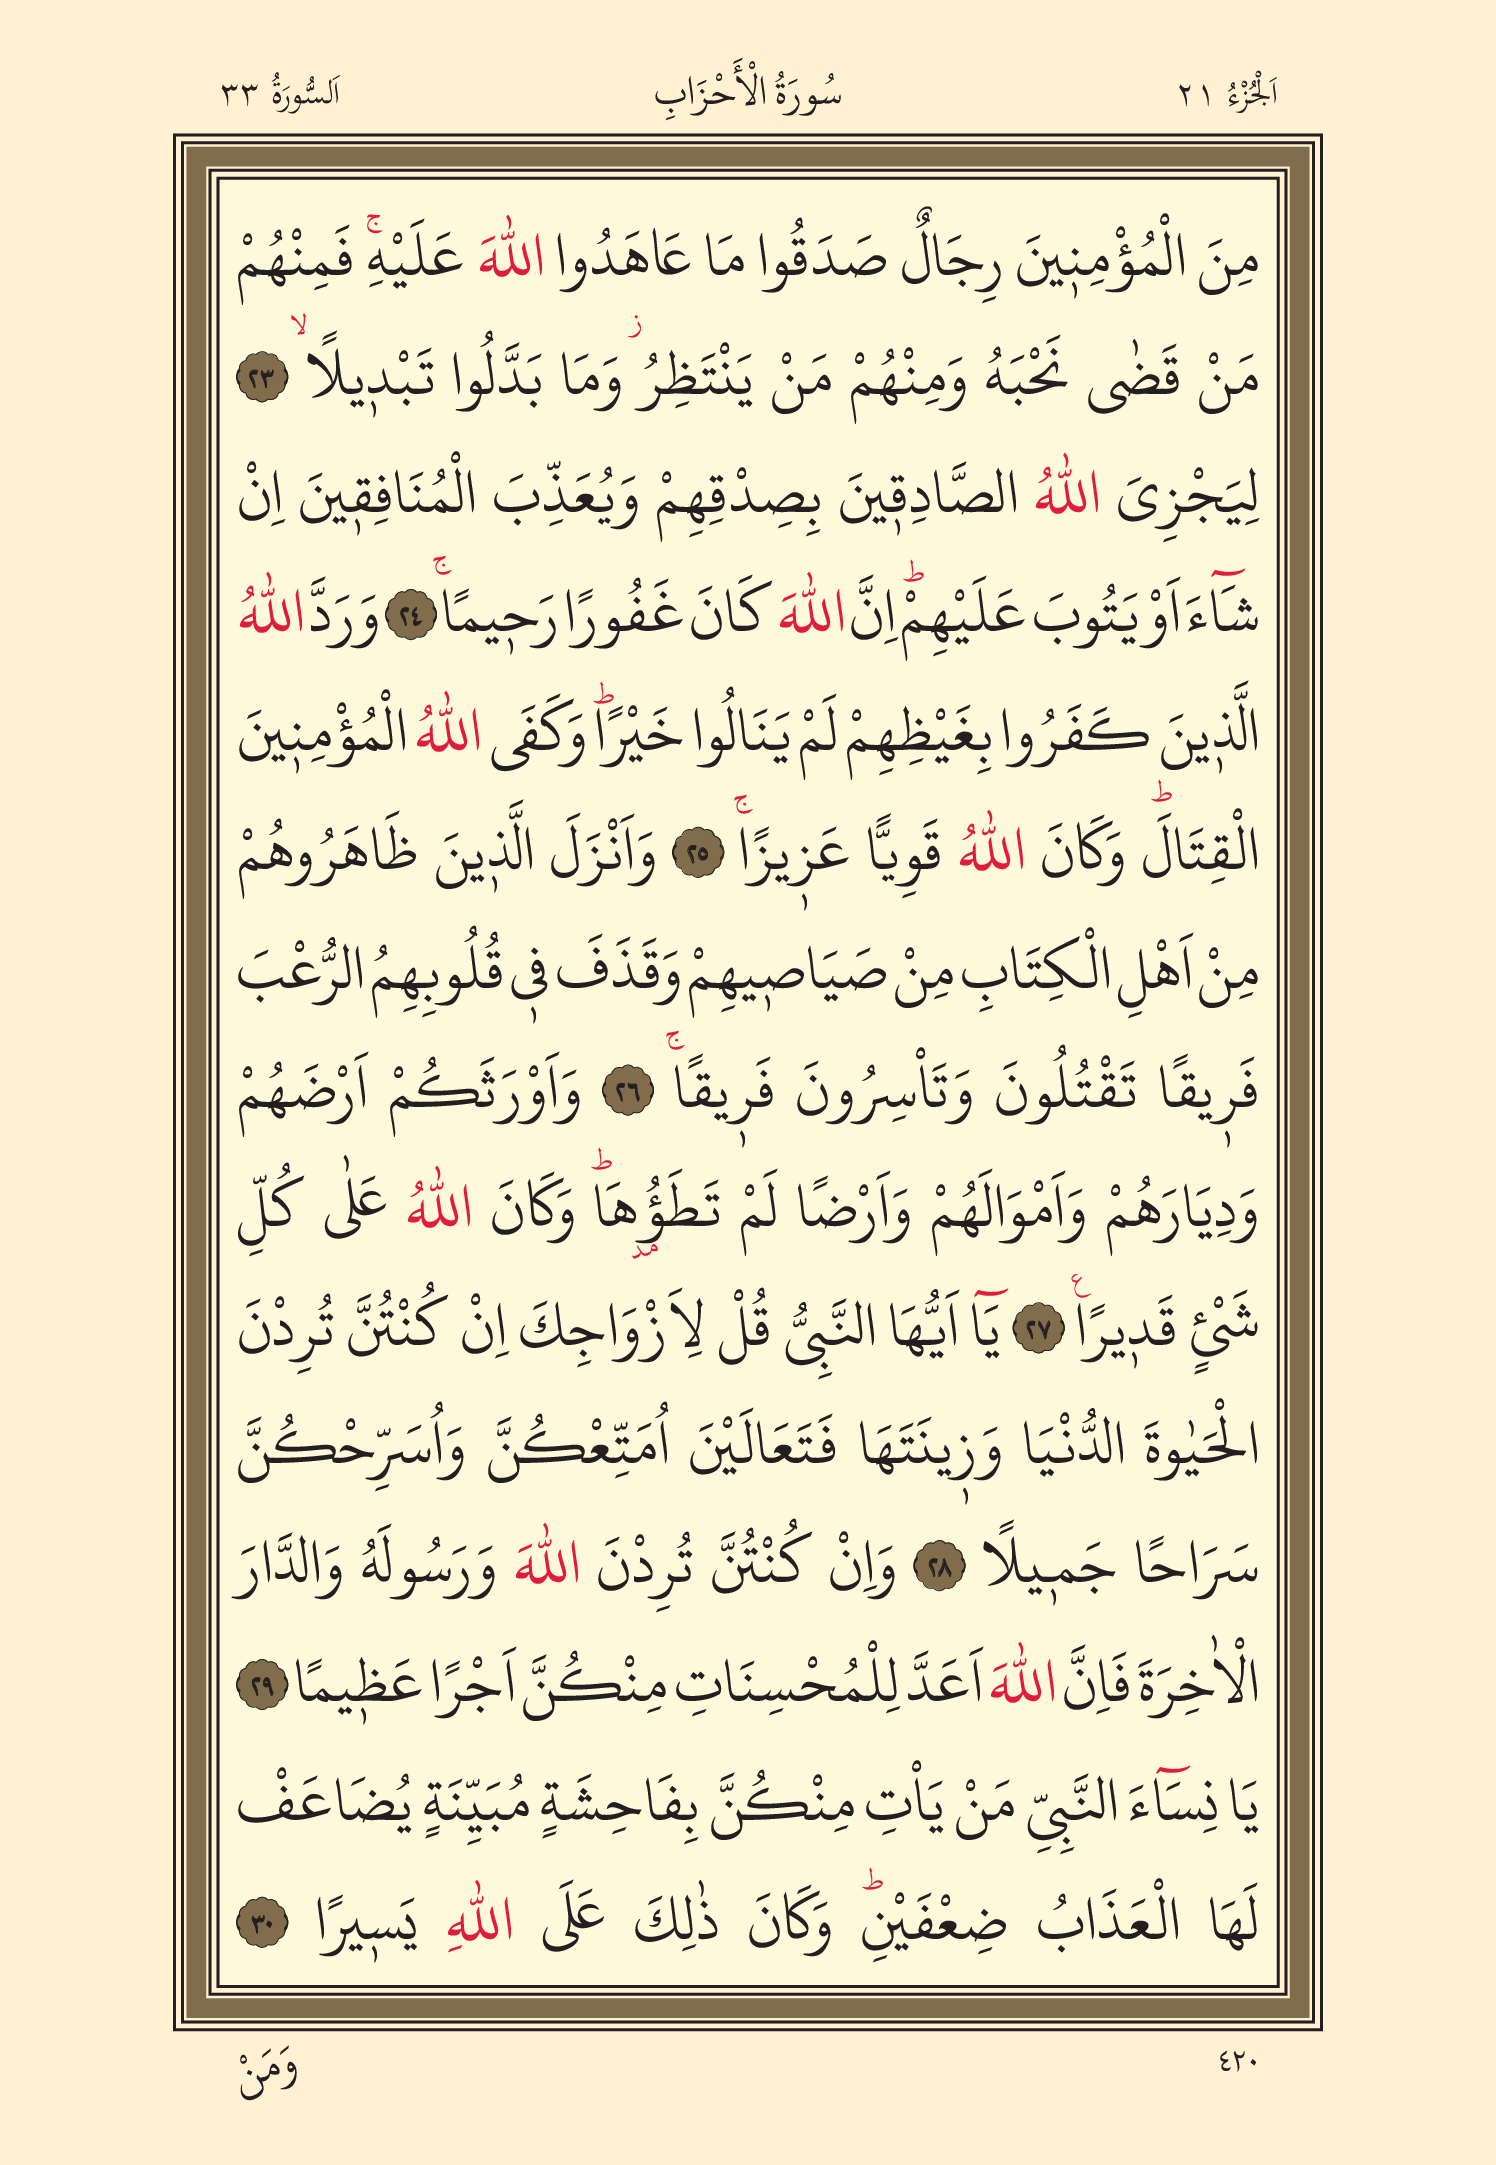 اَلْجُزْءُ ٢١ سُورَةُ الْأَحْزَابِ اَلسُّورَةُ ٣٣
مِنَ الْمُؤْمِنٖينَ رِجَالٌ صَدَقُوا مَا عَاهَدُوا اللّٰهَ عَلَيْهِۚ فَمِنْهُمْ
مَنْ قَضٰى نَحْبَهُ وَمِنْهُمْ مَنْ يَنْتَظِرُؗ وَمَا بَدَّلُوا تَبْدٖيلًاۙ ٢٣
لِيَجْزِىَ اللّٰهُ الصَّادِقٖينَ بِصِدْقِهِمْ وَيُعَذِّبَ الْمُنَافِقٖينَ اِنْ
شَٓاءَ اَوْ يَتُوبَ عَلَيْهِمْؕ اِنَّ اللّٰهَ كَانَ غَفُورًا رَحٖيمًاۚ ٢٤ وَرَدَّ اللّٰهُ
الَّذٖينَ كَفَرُوا بِغَيْظِهِمْ لَمْ يَنَالُوا خَيْرًاؕ وَكَفَى اللّٰهُ الْمُؤْمِنٖينَ
الْقِتَالَؕ وَكَانَ اللّٰهُ قَوِيًّا عَزٖيزًاۚ ٢٥ وَاَنْزَلَ الَّذٖينَ ظَاهَرُوهُمْ
مِنْ اَهْلِ الْكِتَابِ مِنْ صَيَاصٖيهِمْ وَقَذَفَ فٖى قُلُوبِهِمُ الرُّعْبَ
فَرٖيقًا تَقْتُلُونَ وَتَاْسِرُونَ فَرٖيقًاۚ ٢٦ وَاَوْرَثَكُمْ اَرْضَهُمْ
وَدِيَارَهُمْ وَاَمْوَالَهُمْ وَاَرْضًا لَمْ تَطَؤُ۫هَاؕ وَكَانَ اللّٰهُ عَلٰى كُلِّ
شَىْئٍ قَدٖيرًاࣖ ٢٧ يَٓا اَيُّهَا النَّبِىُّ قُلْ لِاَزْوَاجِكَ اِنْ كُنْتُنَّ تُرِدْنَ
الْحَيٰوةَ الدُّنْيَا وَزٖينَتَهَا فَتَعَالَيْنَ اُمَتِّعْكُنَّ وَاُسَرِّحْكُنَّ
سَرَاحًا جَمٖيلًا ٢٨ وَاِنْ كُنْتُنَّ تُرِدْنَ اللّٰهَ وَرَسُولَهُ وَالدَّارَ
الْاٰخِرَةَ فَاِنَّ اللّٰهَ اَعَدَّ لِلْمُحْسِنَاتِ مِنْكُنَّ اَجْرًا عَظٖيمًا ٢٩
يَا نِسَٓاءَ النَّبِىِّ مَنْ يَاْتِ مِنْكُنَّ بِفَاحِشَةٍ مُبَيِّنَةٍ يُضَاعَفْ
لَهَا الْعَذَابُ ضِعْفَيْنِؕ وَكَانَ ذٰلِكَ عَلَى اللّٰهِ يَسٖيرًا ٣٠
٤٢٠ وَمَنْ